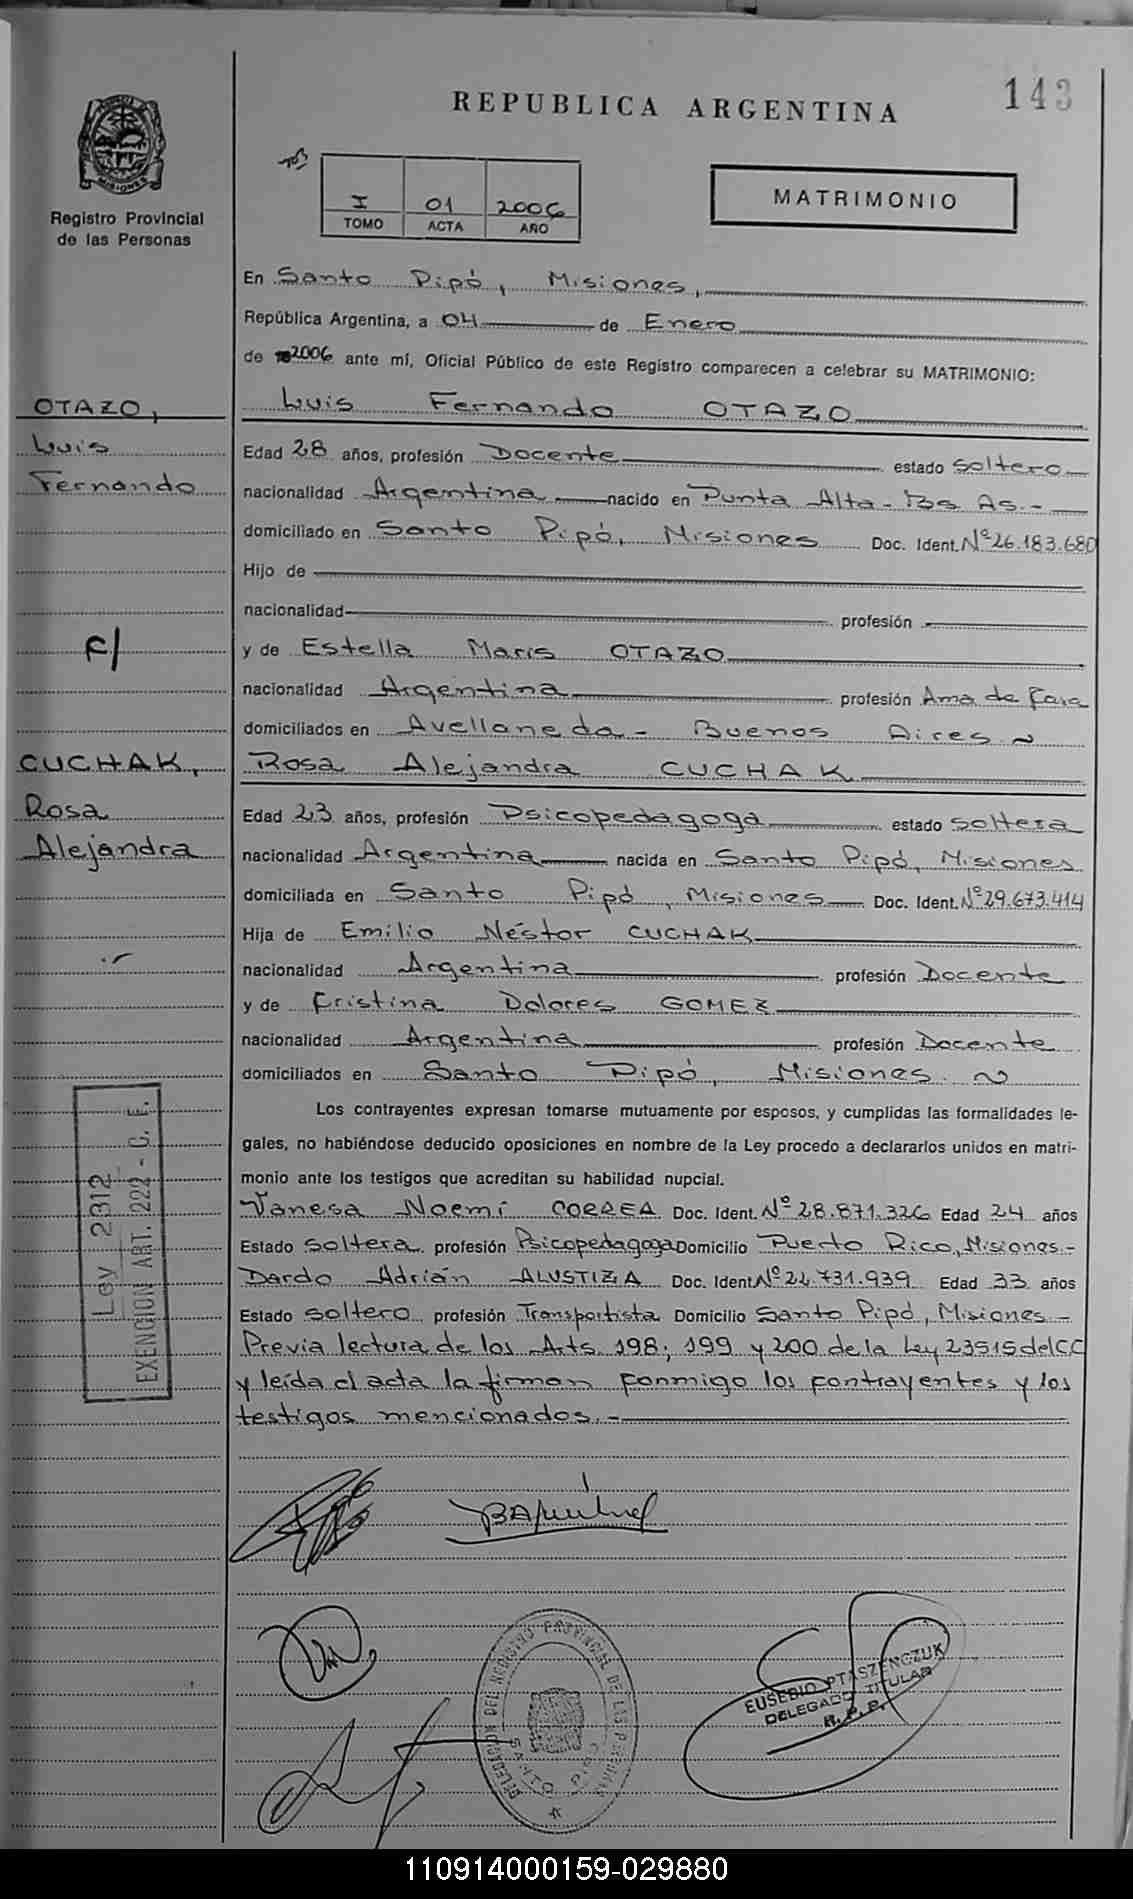 143
REPUBLICA ARGENTINA
MISIONES
Registro Provincial
de las Personas
I 01 2006
TOMO ACTA AÑO
MATRIMONIO
En Santo Pipó, Misiones,
República Argentina, a 04 de Enero
de 2006 ante mí, Oficial Público de este Registro comparecen a celebrar su MATRIMONIO:
OTAZO,
Luis
Fernando
Luis Fernando OTAZO
Edad 28 años, profesión Docente estado Soltero
nacionalidad Argentina nacido en Punta Alta - Bs As.-
domiciliado en Santo Pipó, Misiones Doc. Ident. Nº 26.183.680
Hijo de
nacionalidad profesión
y de Estella Maris OTAZO
nacionalidad Argentina profesión Ama de Casa
domiciliados en Avellaneda - Buenos Aires ~
CUCHAK,
Rosa
Alejandra
Rosa Alejandra CUCHAK
Edad 23 años, profesión Psicopedagoga estado soltera
nacionalidad Argentina nacida en Santo Pipó, Misiones
domiciliada en Santo Pipó, Misiones Doc. Ident. Nº 29.673.414
Hija de Emilio Néstor CUCHAK
nacionalidad Argentina profesión Docente
y de Cristina Dolores GOMEZ
nacionalidad Argentina profesión Docente
domiciliados en Santo Pipó, Misiones. ~
Los contrayentes expresan tomarse mutuamente por esposos, y cumplidas las formalidades le-
gales, no habiéndose deducido oposiciones en nombre de la Ley procedo a declararlos unidos en matri-
monio ante los testigos que acreditan su habilidad nupcial.
Vanesa Noemí CORREA Doc. Ident. Nº 28.871.326 Edad 24 años
Estado soltera profesión Psicopedagoga Domicilio Puerto Rico, Misiones.-
Dardo Adrián ALUSTIZA Doc. Ident Nº 22.731.939 Edad 33 años
Estado soltero profesión Transportista Domicilio Santo Pipó, Misiones.-
Previa lectura de los Arts. 198; 199 y 200 de la Ley 23515 del C.C
y leída el acta la firman conmigo los contrayentes y los
testigos mencionados.-
Ley 2312
EXENCION ART. 222 - C. F.
DELEGACION DEL REGISTRO PROVINCIAL DE LAS PERSONAS
SANTO PIPO
EUSEBIO PTASZENCZUK
DELEGADO TITULAR
R. P. P.
110914000159-029880